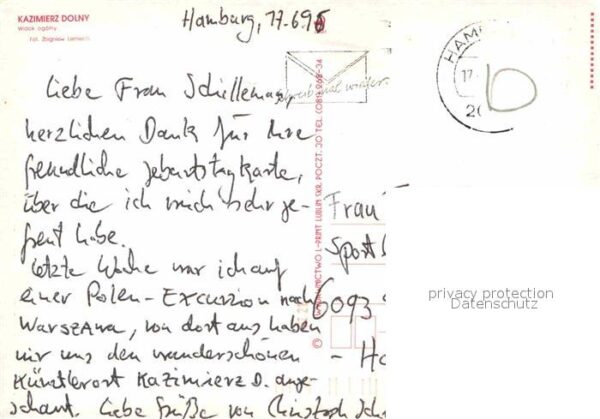 KAZIMIERZ DOLNY
Widok ogólny
Fot. Zbigniew
Hamburg, 17.6.95
Liebe Frau Schillemann,
herzlichen Dank für Ihre
freundliche Geburtstagskarte,
über die ich mich sehr ge-
freut habe.
Letzte Woche war ich auf
einer Polen-Excursion nach
Warszawa, von dort aus haben
wir uns den wunderschönen
Künstlerort Kazimierz D. ange-
schaut. Liebe Grüße von Christoph
Schreib mal wieder
L-PRINT LUBLIN SKR. POCZT. 30 TEL. (081)
HAM
17.
20
Frau
Sport
6093
- Ha
privacy protection
Datenschutz